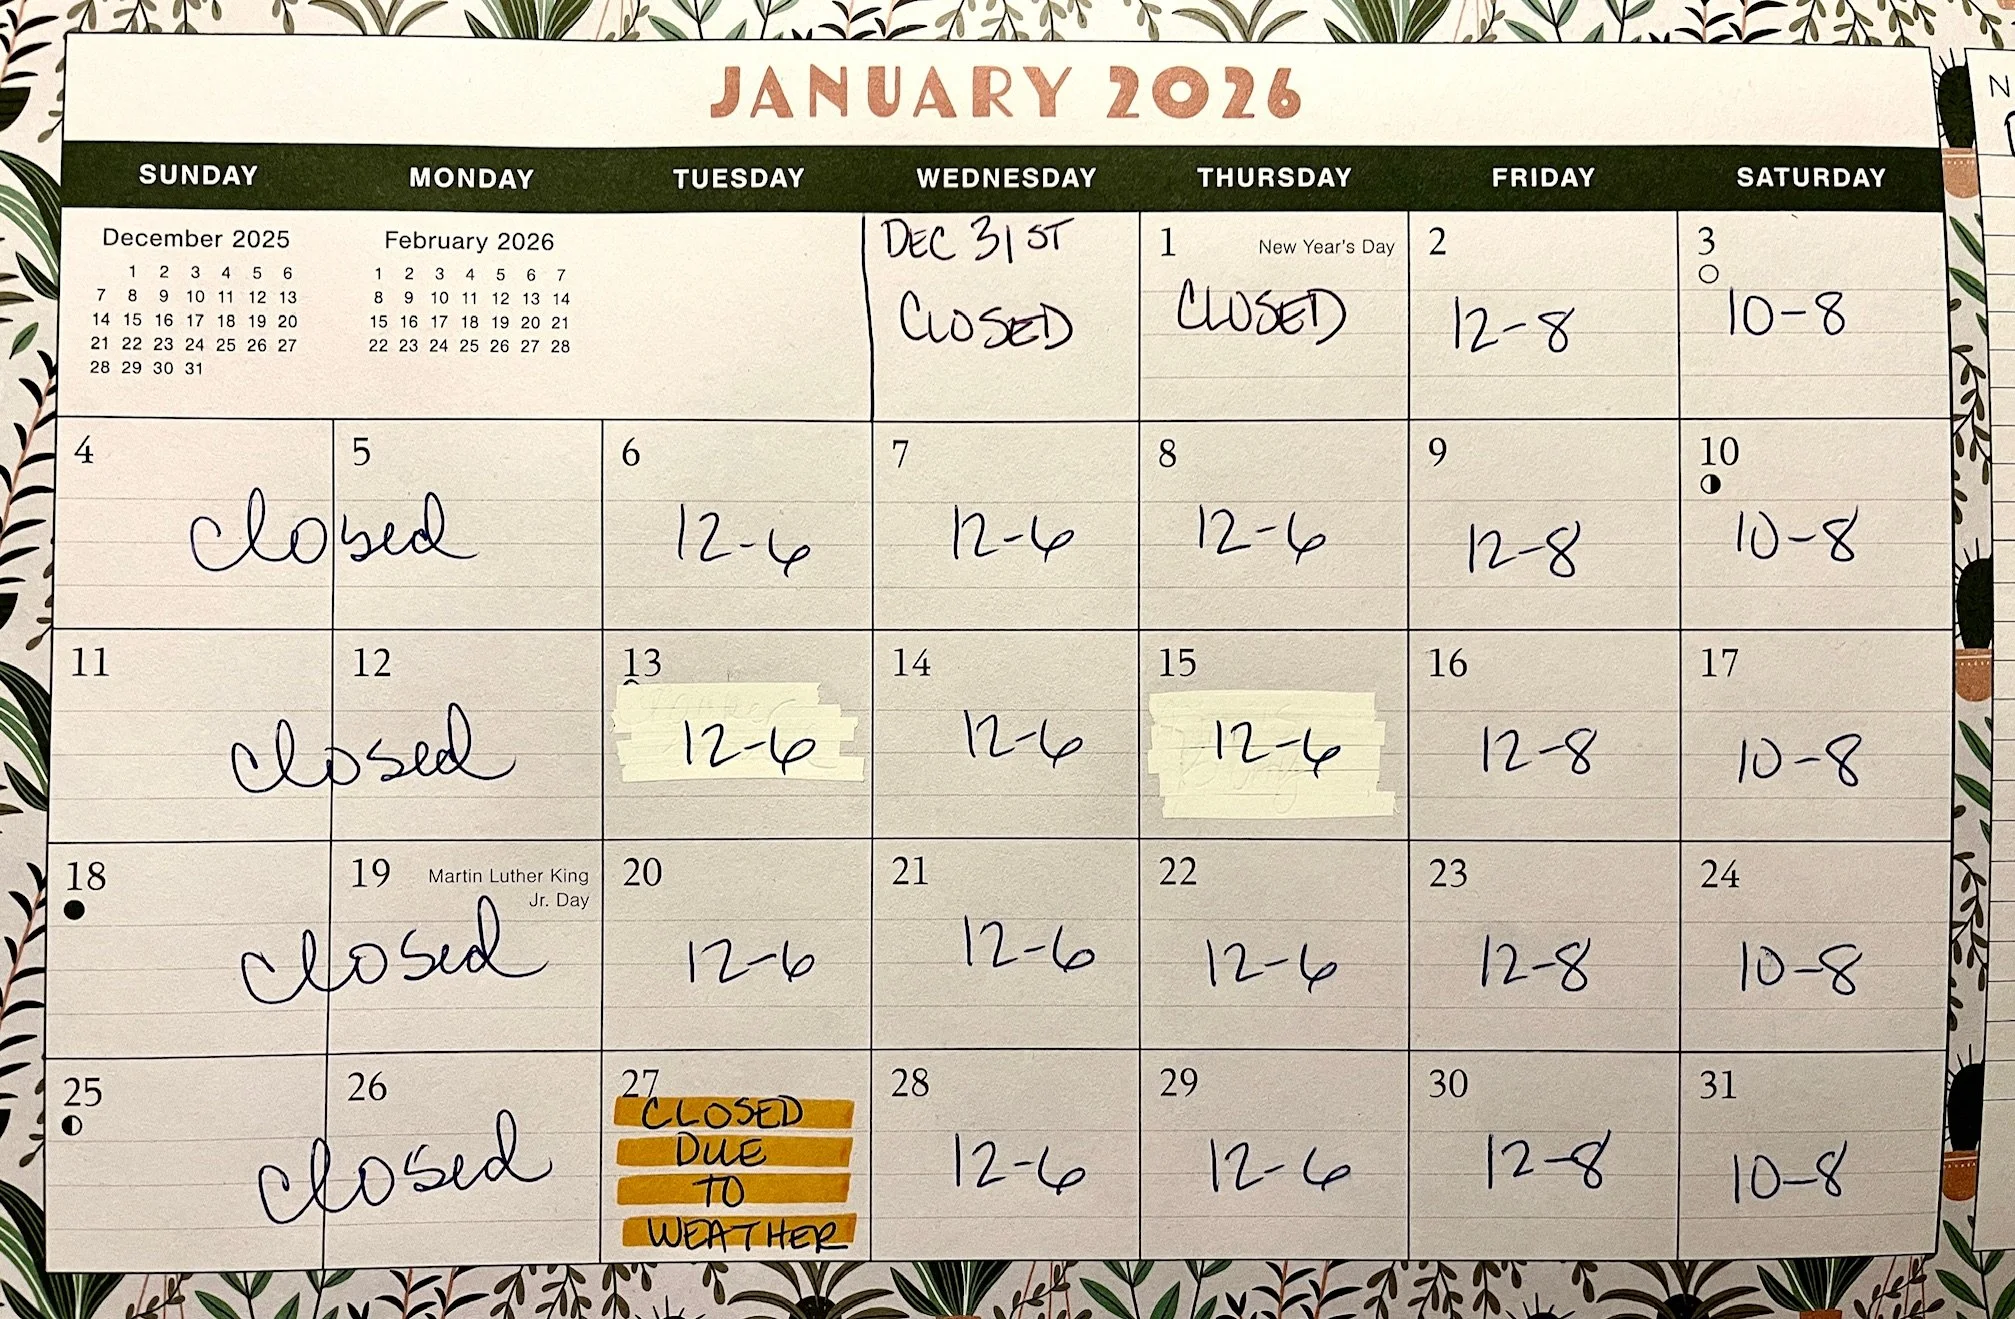 JANUARY 2026
SUNDAY MONDAY TUESDAY WEDNESDAY THURSDAY FRIDAY SATURDAY
December 2025
1 2 3 4 5 6
7 8 9 10 11 12 13
14 15 16 17 18 19 20
21 22 23 24 25 26 27
28 29 30 31
February 2026
1 2 3 4 5 6 7
8 9 10 11 12 13 14
15 16 17 18 19 20 21
22 23 24 25 26 27 28
DEC 31ST
CLOSED
1 New Year's Day
CLOSED
2
12-8
3
10-8
4 5
closed
6
12-6
7
12-6
8
12-6
9
12-8
10
10-8
11 12
closed
13
12-6
14
12-6
15
12-6
16
12-8
17
10-8
18 19 Martin Luther King
Jr. Day
closed
20
12-6
21
12-6
22
12-6
23
12-8
24
10-8
25 26
closed
27
CLOSED
DUE
TO
WEATHER
28
12-6
29
12-6
30
12-8
31
10-8